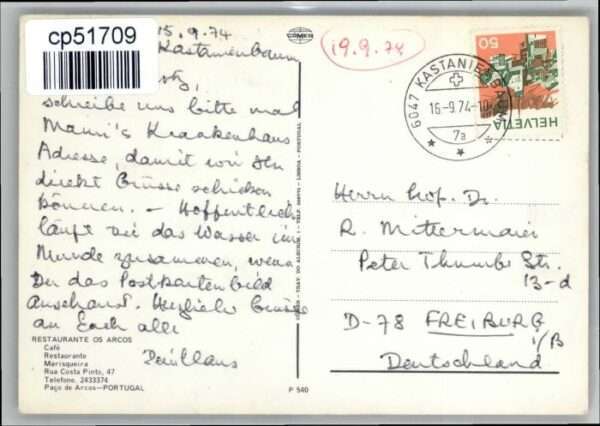 cp51709
15.9.74
Kastanienbaum
schreibe uns bitte mal
Mami's Krankenhaus
Adresse, damit wir Ihr
direkt Grüsse schicken
können. – Hoffentlich
läuft Dir das Wasser im
Munde zusammen, wenn
Du das Postkartenbild
anschaust. Herzliche Grüsse
an Euch alle
RESTAURANTE OS ARCOS
Café
Restaurante
Marisqueira
Rua Costa Pinto, 47
Telefone. 2433374
Paço de Arcos—PORTUGAL
COMER
P 540
19.9.74
6047 KASTANIENBAUM
16-9.74-10
7a
HELVETIA
50
Herrn Prof. Dr.
R. Mittermaier
Peter Thumb Str.
13-d
D-78 FREIBURG
i/B
Deutschland